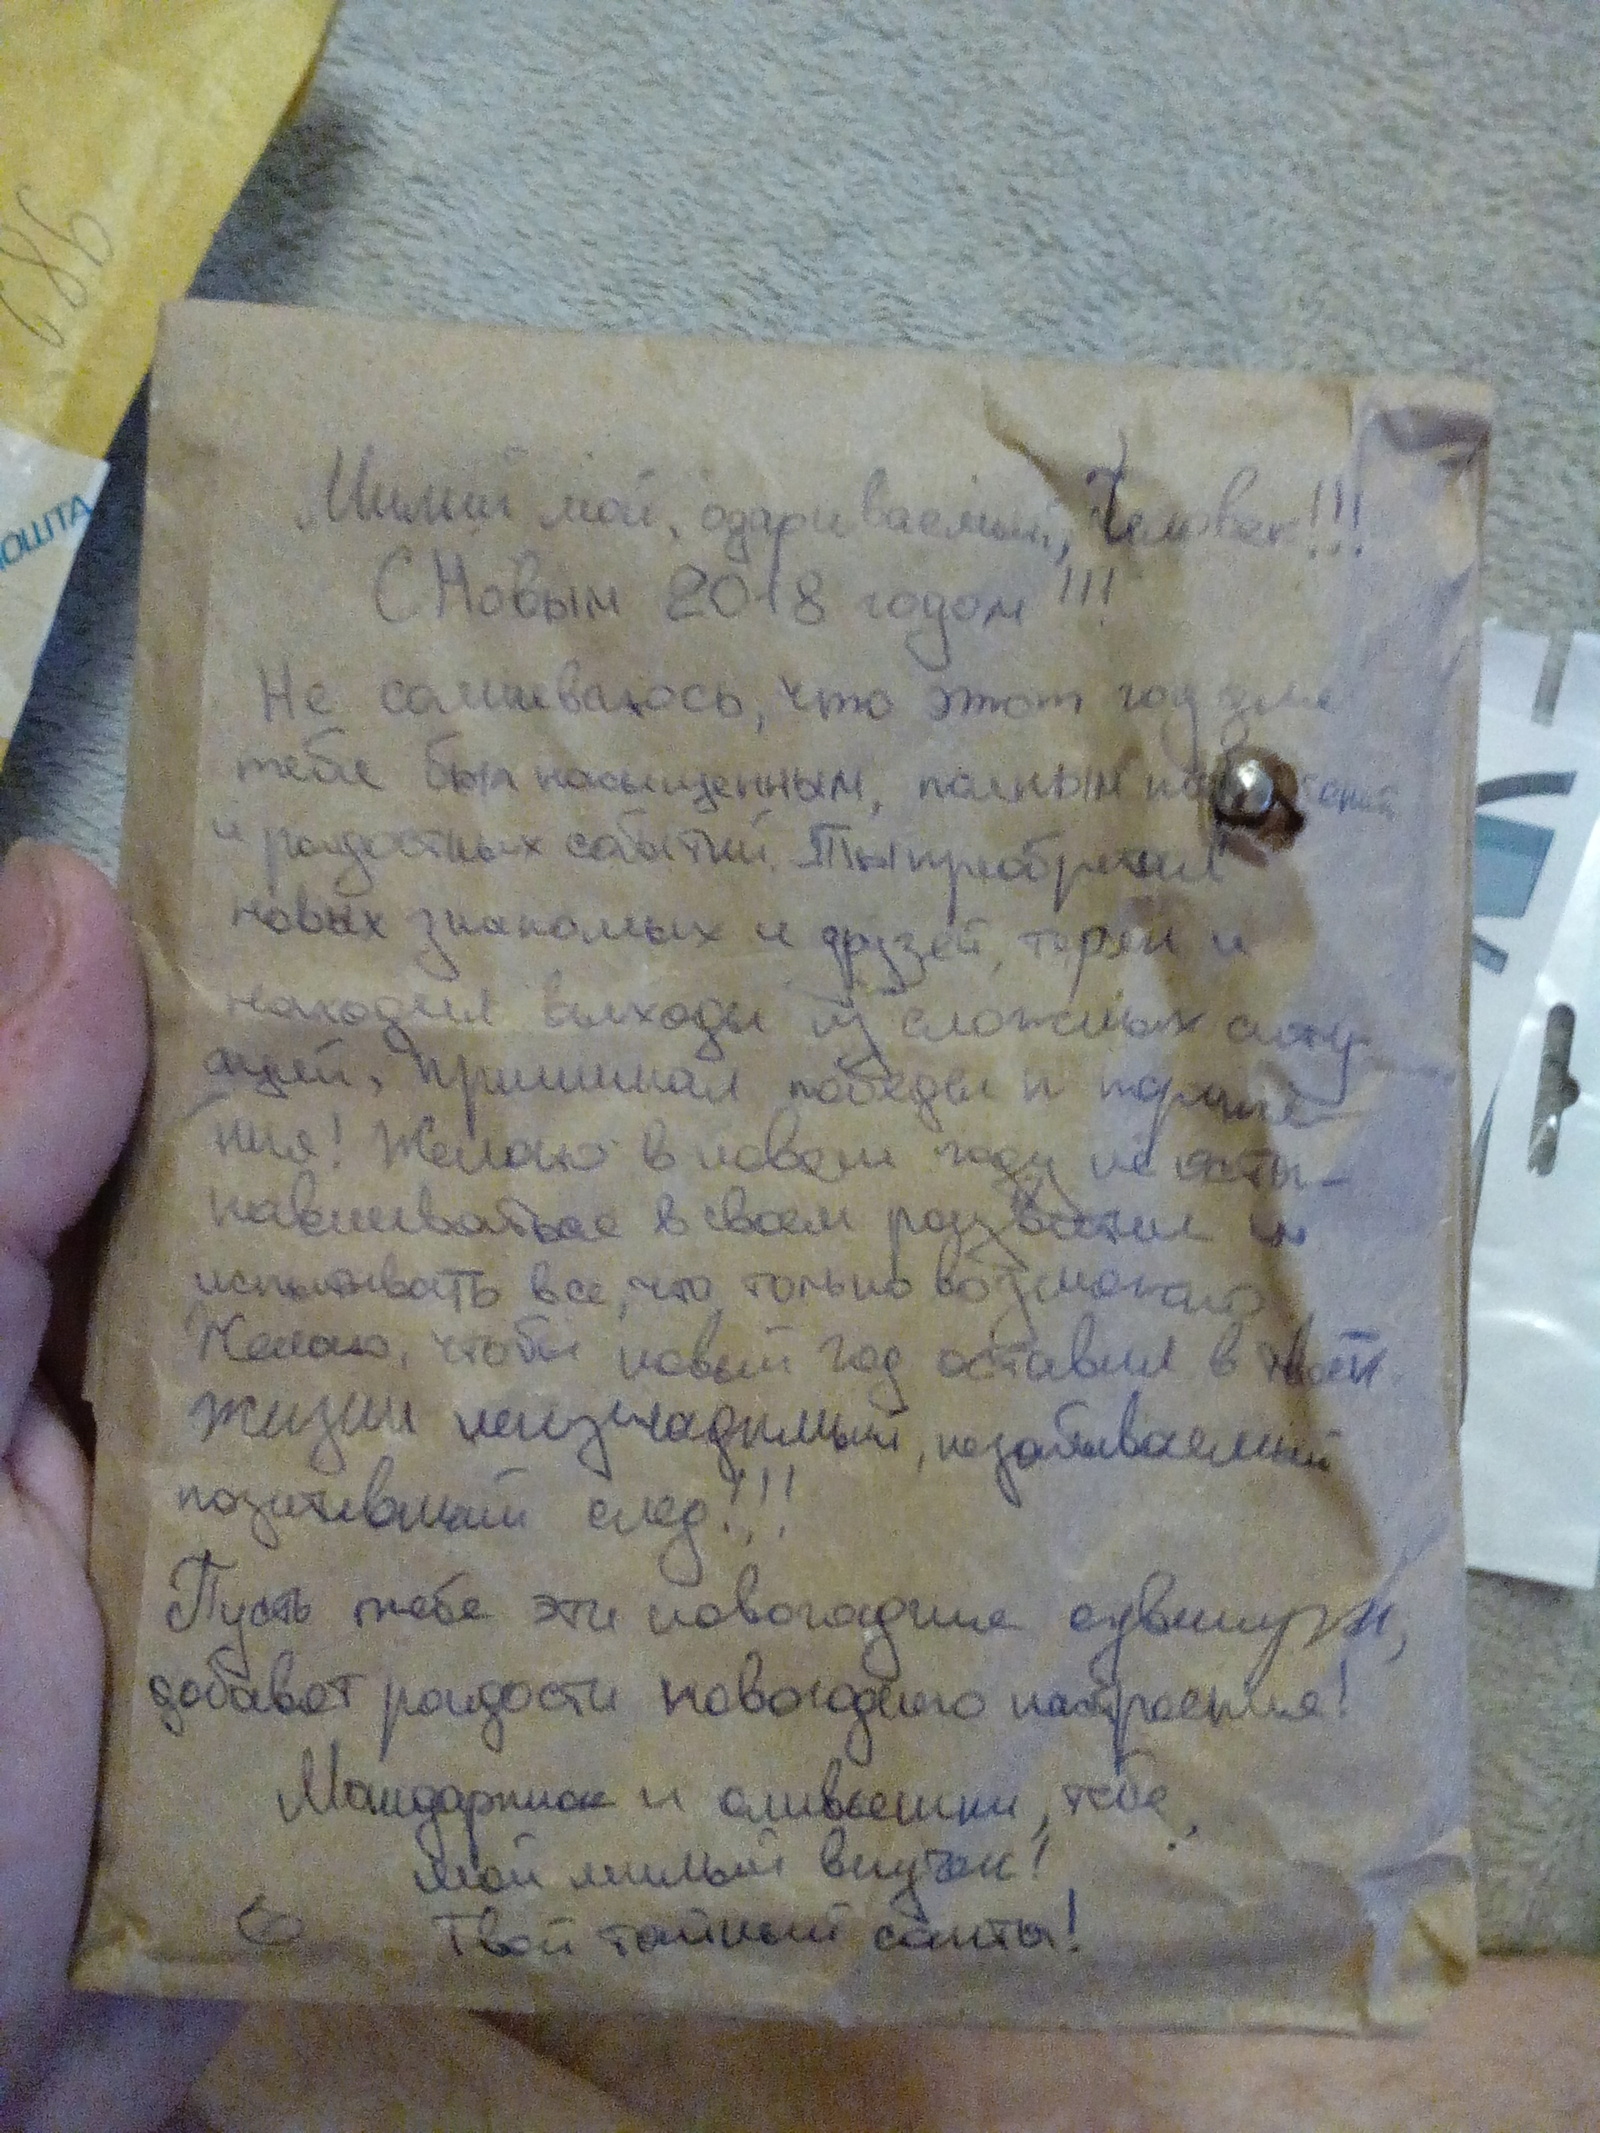 982
ПОШТА
Милый мой, одариваемый, Человек!!!
С Новым 2018 годом!!!
Не сомневаюсь, что этот год для
тебя был насыщенным, полным
и радостных событий. Ты приобретал
новых знакомых и друзей, терял и
находил выходы из сложных ситу-
аций, принимал победы и пораже-
ния! Желаю в новом году не оста-
навливаться в своем развитие и
испытывать все, что только возможно
Желаю, чтобы новый год оставил в твоей
жизни неизгладимый, незабываемый
позитивный след!!!
Пусть тебе эти новогодние сувениры,
добавят радости новогоднего настроения!
Мандаринок и оливьешки, тебе,
мой милый внучок!
Твой тайный санта!